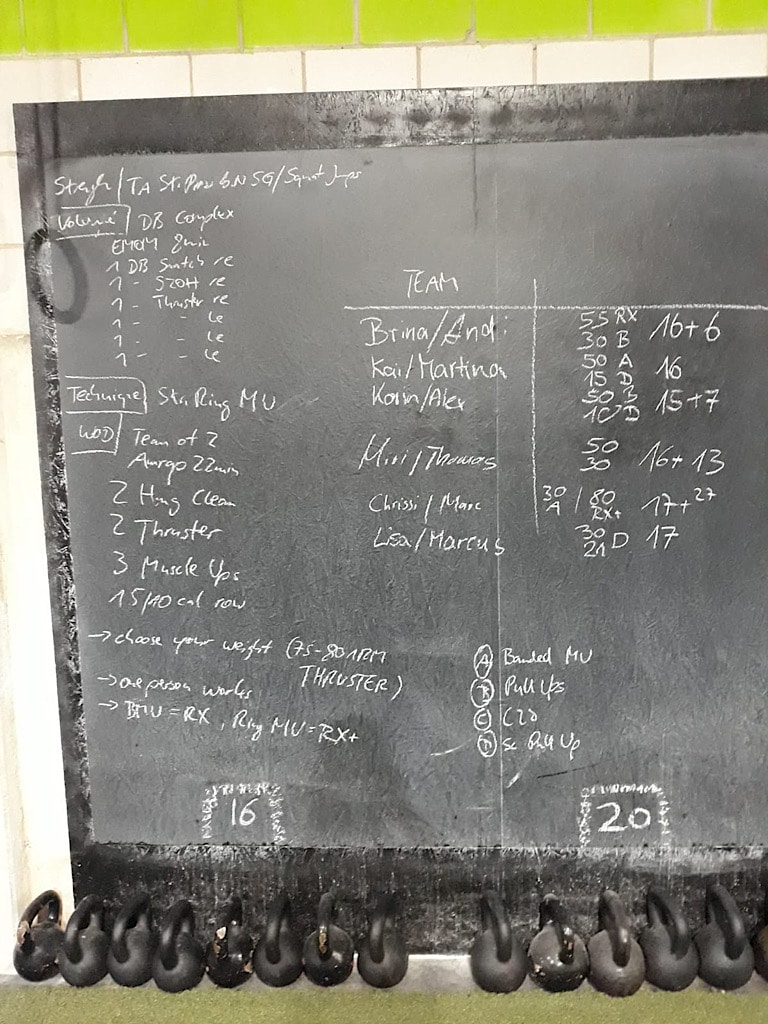 Volume DB Complex
EMOM 8min
1 DB Snatch re
1 - S2OH re
1 - Thruster re
1 - - le
1 - - le
1 - - le
Technique Ring MU
WOD Team of 2
Amrap 22min
2 Hang Clean
2 Thruster
3 Muscle Ups
15/10 cal row
→ choose your weight (75-80 1RM
THRUSTER)
→ one person works
→ BMU = RX, Ring MU = RX+
16
TEAM
Brina/Andi 55 RX 30 B 16+6
Kai/Martina 50 A 15 D 16
Karin/Alex 50 B D 15+7
Miri/Thomas 50 30 16+13
Chrissi/Marc 30 A / 80 RX+ 17+27
Lisa/Marcus 30 21 D 17
A Banded MU
B Pull Ups
C C2B
D Sc Pull Up
20